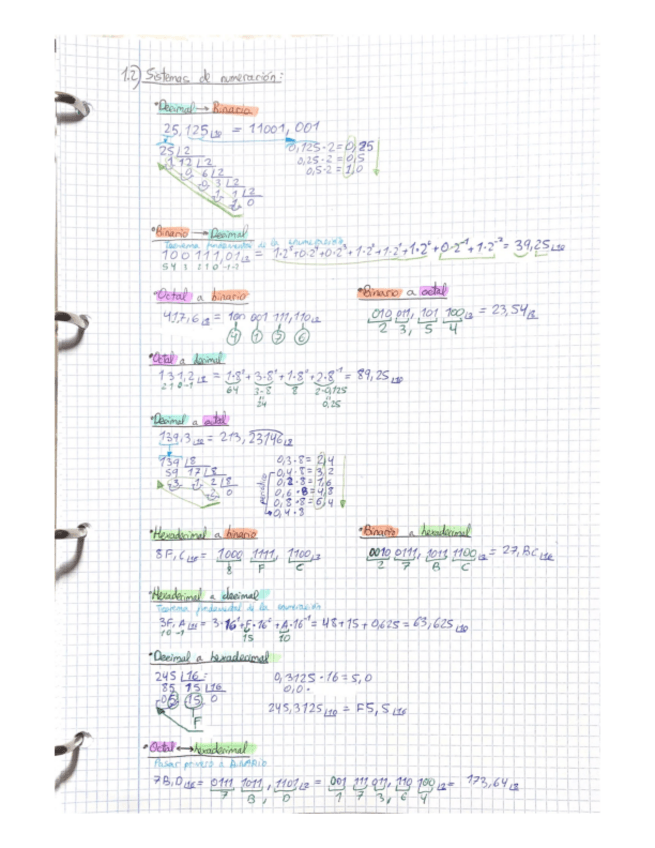 1.2) Sistemas de numeración:
• Decimal → Binario
25,125 |10 = 11001,001
25 |2
1 12 |2
0 6 |2
0 3 |2
1 1 |2
1 0
0,125·2=0,25
0,25·2=0,5
0,5·2=1,0
• Binario → Decimal
Teorema fundamental de la numeración
100111,01|2 = 1·2⁵+0·2⁴+0·2³+1·2²+1·2¹+1·2⁰+0·2⁻¹+1·2⁻² = 39,25|10
• Octal a binario
417,6|8 = 100 001 111,110|2
4 1 7 6
• Binario a octal
010 011, 101 100|2 = 23,54|8
2 3, 5 4
• Octal a decimal
131,2|8 = 1·8²+3·8¹+1·8⁰+2·8⁻¹ = 89,25|10
2 1 0 -1
64 3·8 8 2·0,125
24 0,25
• Decimal a octal
139,3|10 = 213,23146|8
139 |8
59 17 |8
3 1 2 |8
2 0
0,3·8=2,4
0,4·8=3,2
0,2·8=1,6
0,6·8=4,8
0,8·8=6,4
0,4·8
periodo
• Hexadecimal a binario
8F,C|16 = 1000 1111, 1100|2
8 F C
• Binario a hexadecimal
0010 0111, 1011 1100|2 = 27,BC|16
2 7 B C
• Hexadecimal a decimal
Teorema fundamental de la numeración
3F,A|16 = 3·16¹+F·16⁰+A·16⁻¹ = 48+15+0,625 = 63,625|10
1 0 -1
15 10
• Decimal a hexadecimal
245 |16
85 15 |16
05 15 0
F
0,3125·16=5,0
0,0·
245,3125|10 = F5,5|16
• Octal ↔ hexadecimal
Pasar primero a BINARIO
7B,D|16 = 0111 1011, 1101|2 = 001 111 011, 110 100|2 = 173,64|8
7 B, D 1 7 3, 6 4